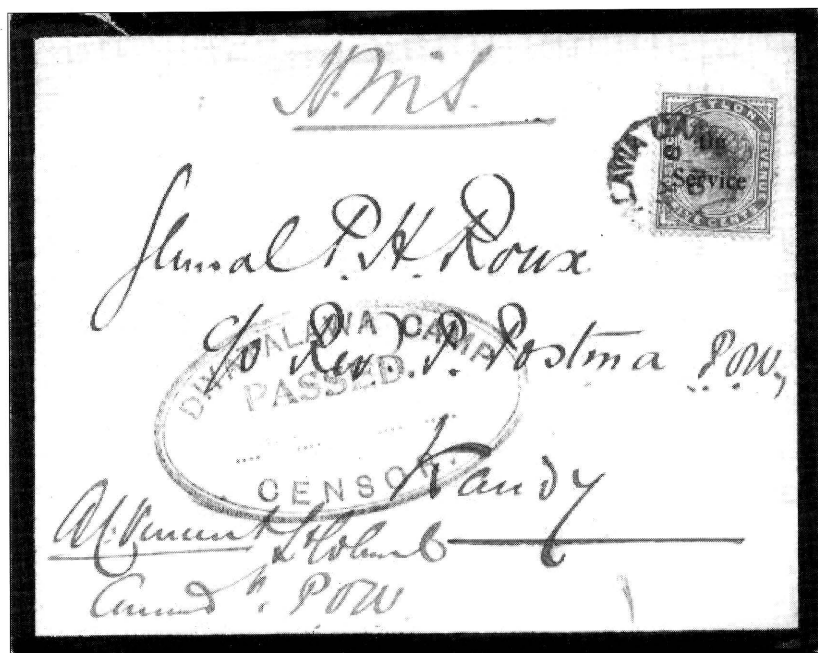 H.M.S.
CEYLON
REVENUE
On
Service
LAWA CA
General P. H. Roux
c/o Rev. P. Postma P.O.W,
DIYATALAWA CAMP
PASSED
CENSOR.
Kandy
Vincent Lt Colonel
POW